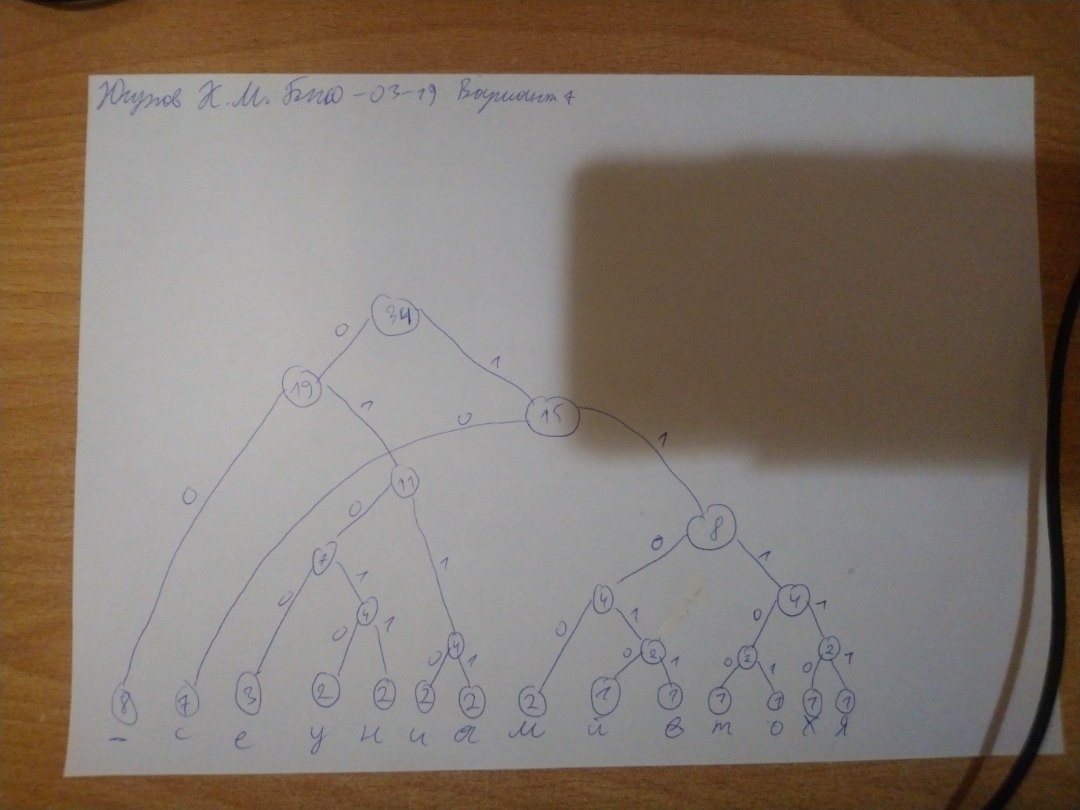 Юсупов Х.М. БПО-03-19 Вариант 7
34
0 1
19
0 1
15
0 1
11
0 1
8
0 1
7
0 1
4
0 1
4
0 1
4
0 1
4
0 1
2
0 1
2
0 1
2
0 1
8 7 3 2 2 2 2 2 1 1 1 1 1 1
_ с е у н и а м й в т о х я